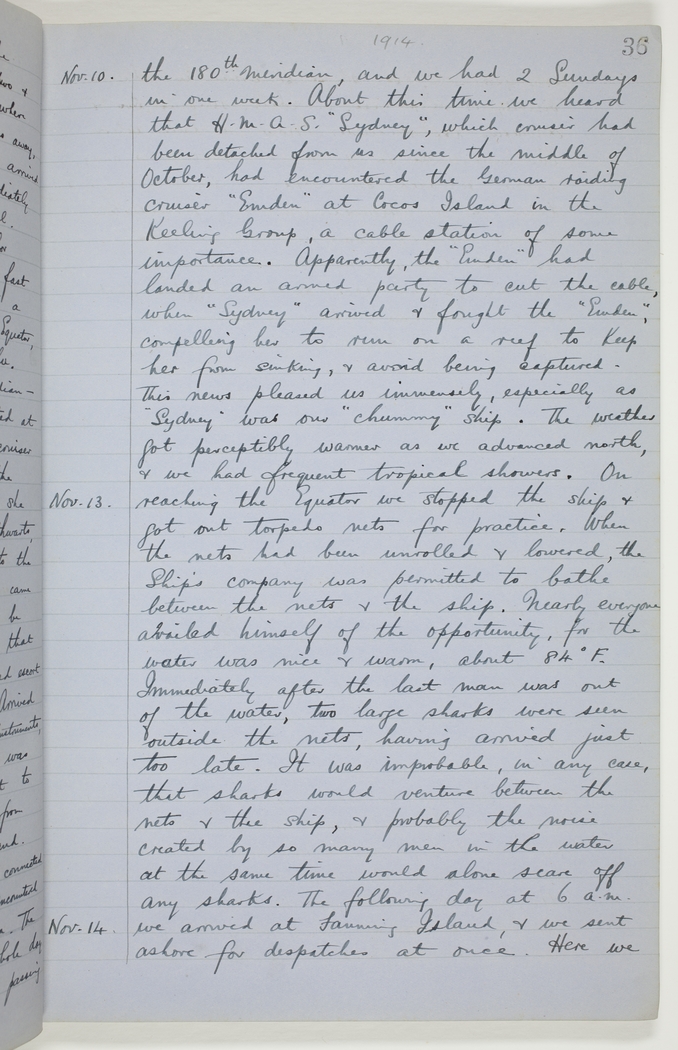 1914.
36
Nov. 10. the 180th meridian, and we had 2 Sundays
in one week. About this time we heard
that H.M.A.S. "Sydney", which cruiser had
been detached from us since the middle of
October, had encountered the German raiding
cruiser "Emden" at Cocos Island in the
Keeling Group, a cable station of some
importance. Apparently, the "Emden" had
landed an armed party to cut the cable,
when "Sydney" arrived & fought the "Emden",
compelling her to run on a reef to keep
her from sinking, & avoid being captured.
This news pleased us immensely, especially as
"Sydney" was our "chummy" ship. The weather
got perceptibly warmer as we advanced north,
& we had frequent tropical showers. On
Nov. 13. reaching the Equator we stopped the ship &
got out torpedo nets for practice. When
the nets had been unrolled & lowered, the
Ship's company was permitted to bathe
between the nets & the ship. Nearly everyone
availed himself of the opportunity, for the
water was nice & warm, about 84° F.
Immediately after the last man was out
of the water, two large sharks were seen
outside the nets, having arrived just
too late. It was improbable, in any case,
that sharks would venture between the
nets & the ship, & probably the noise
created by so many men in the water
at the same time would alone scare off
any sharks. The following day at 6 a.m.
Nov. 14. we arrived at Fanning Island, & we sent
ashore for despatches at once. Here we